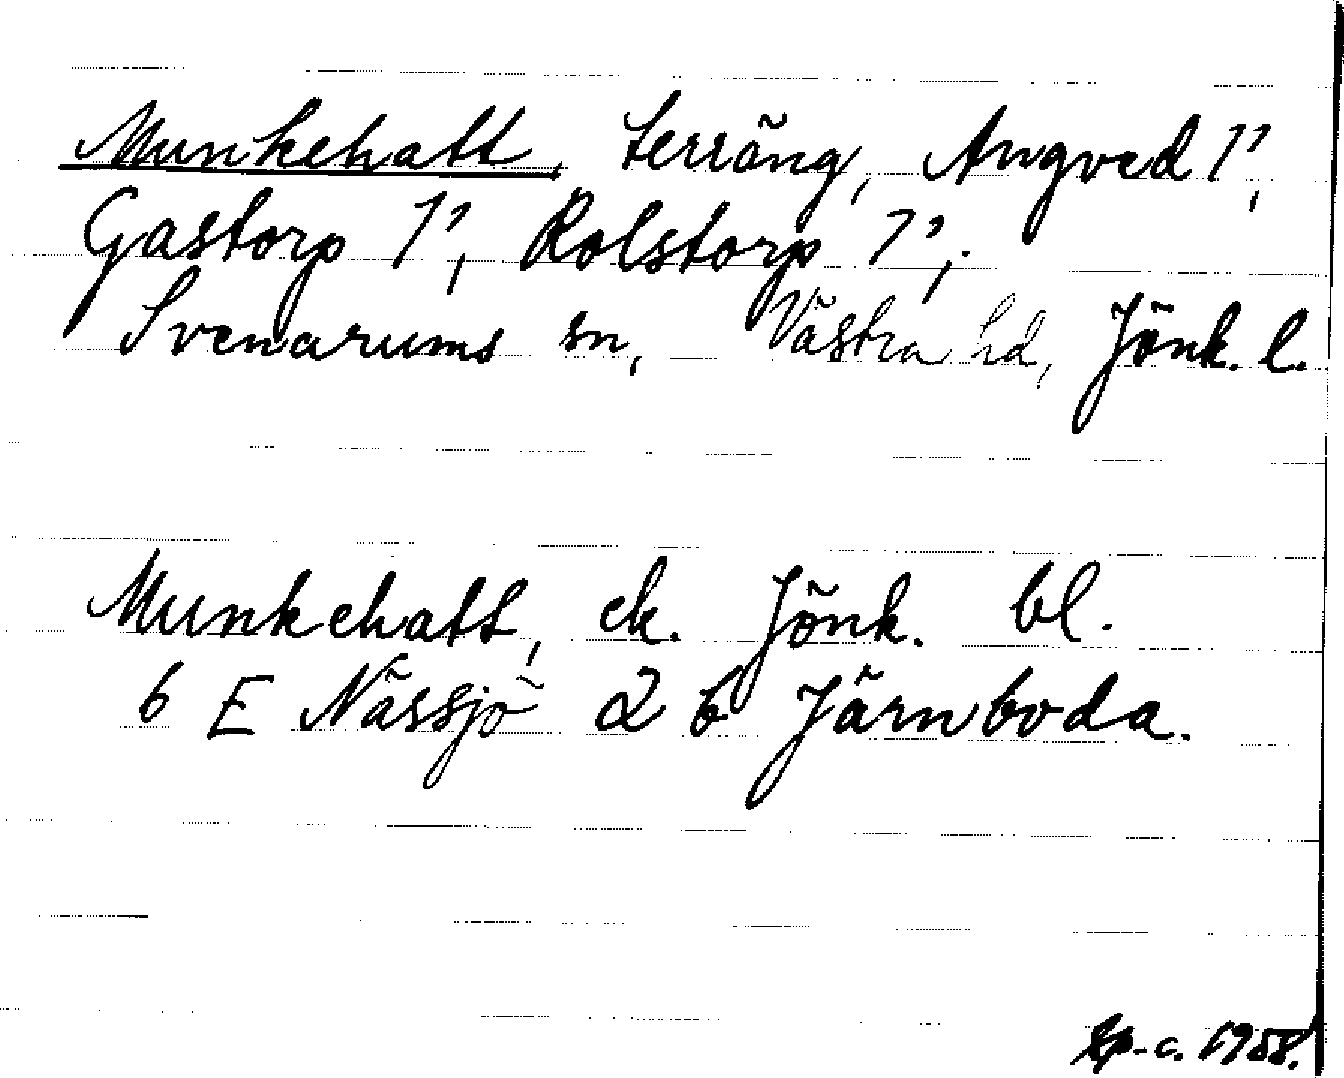 Munkehatt, terräng, Angved 1²,
Gastorp 1², Rolstorp 1²,
Svenarums sn, Västra hd, Jönk. l.
Munkehatt, ek. Jönk. bl.
6 E Nässjö 2 b Järnboda.
1958.